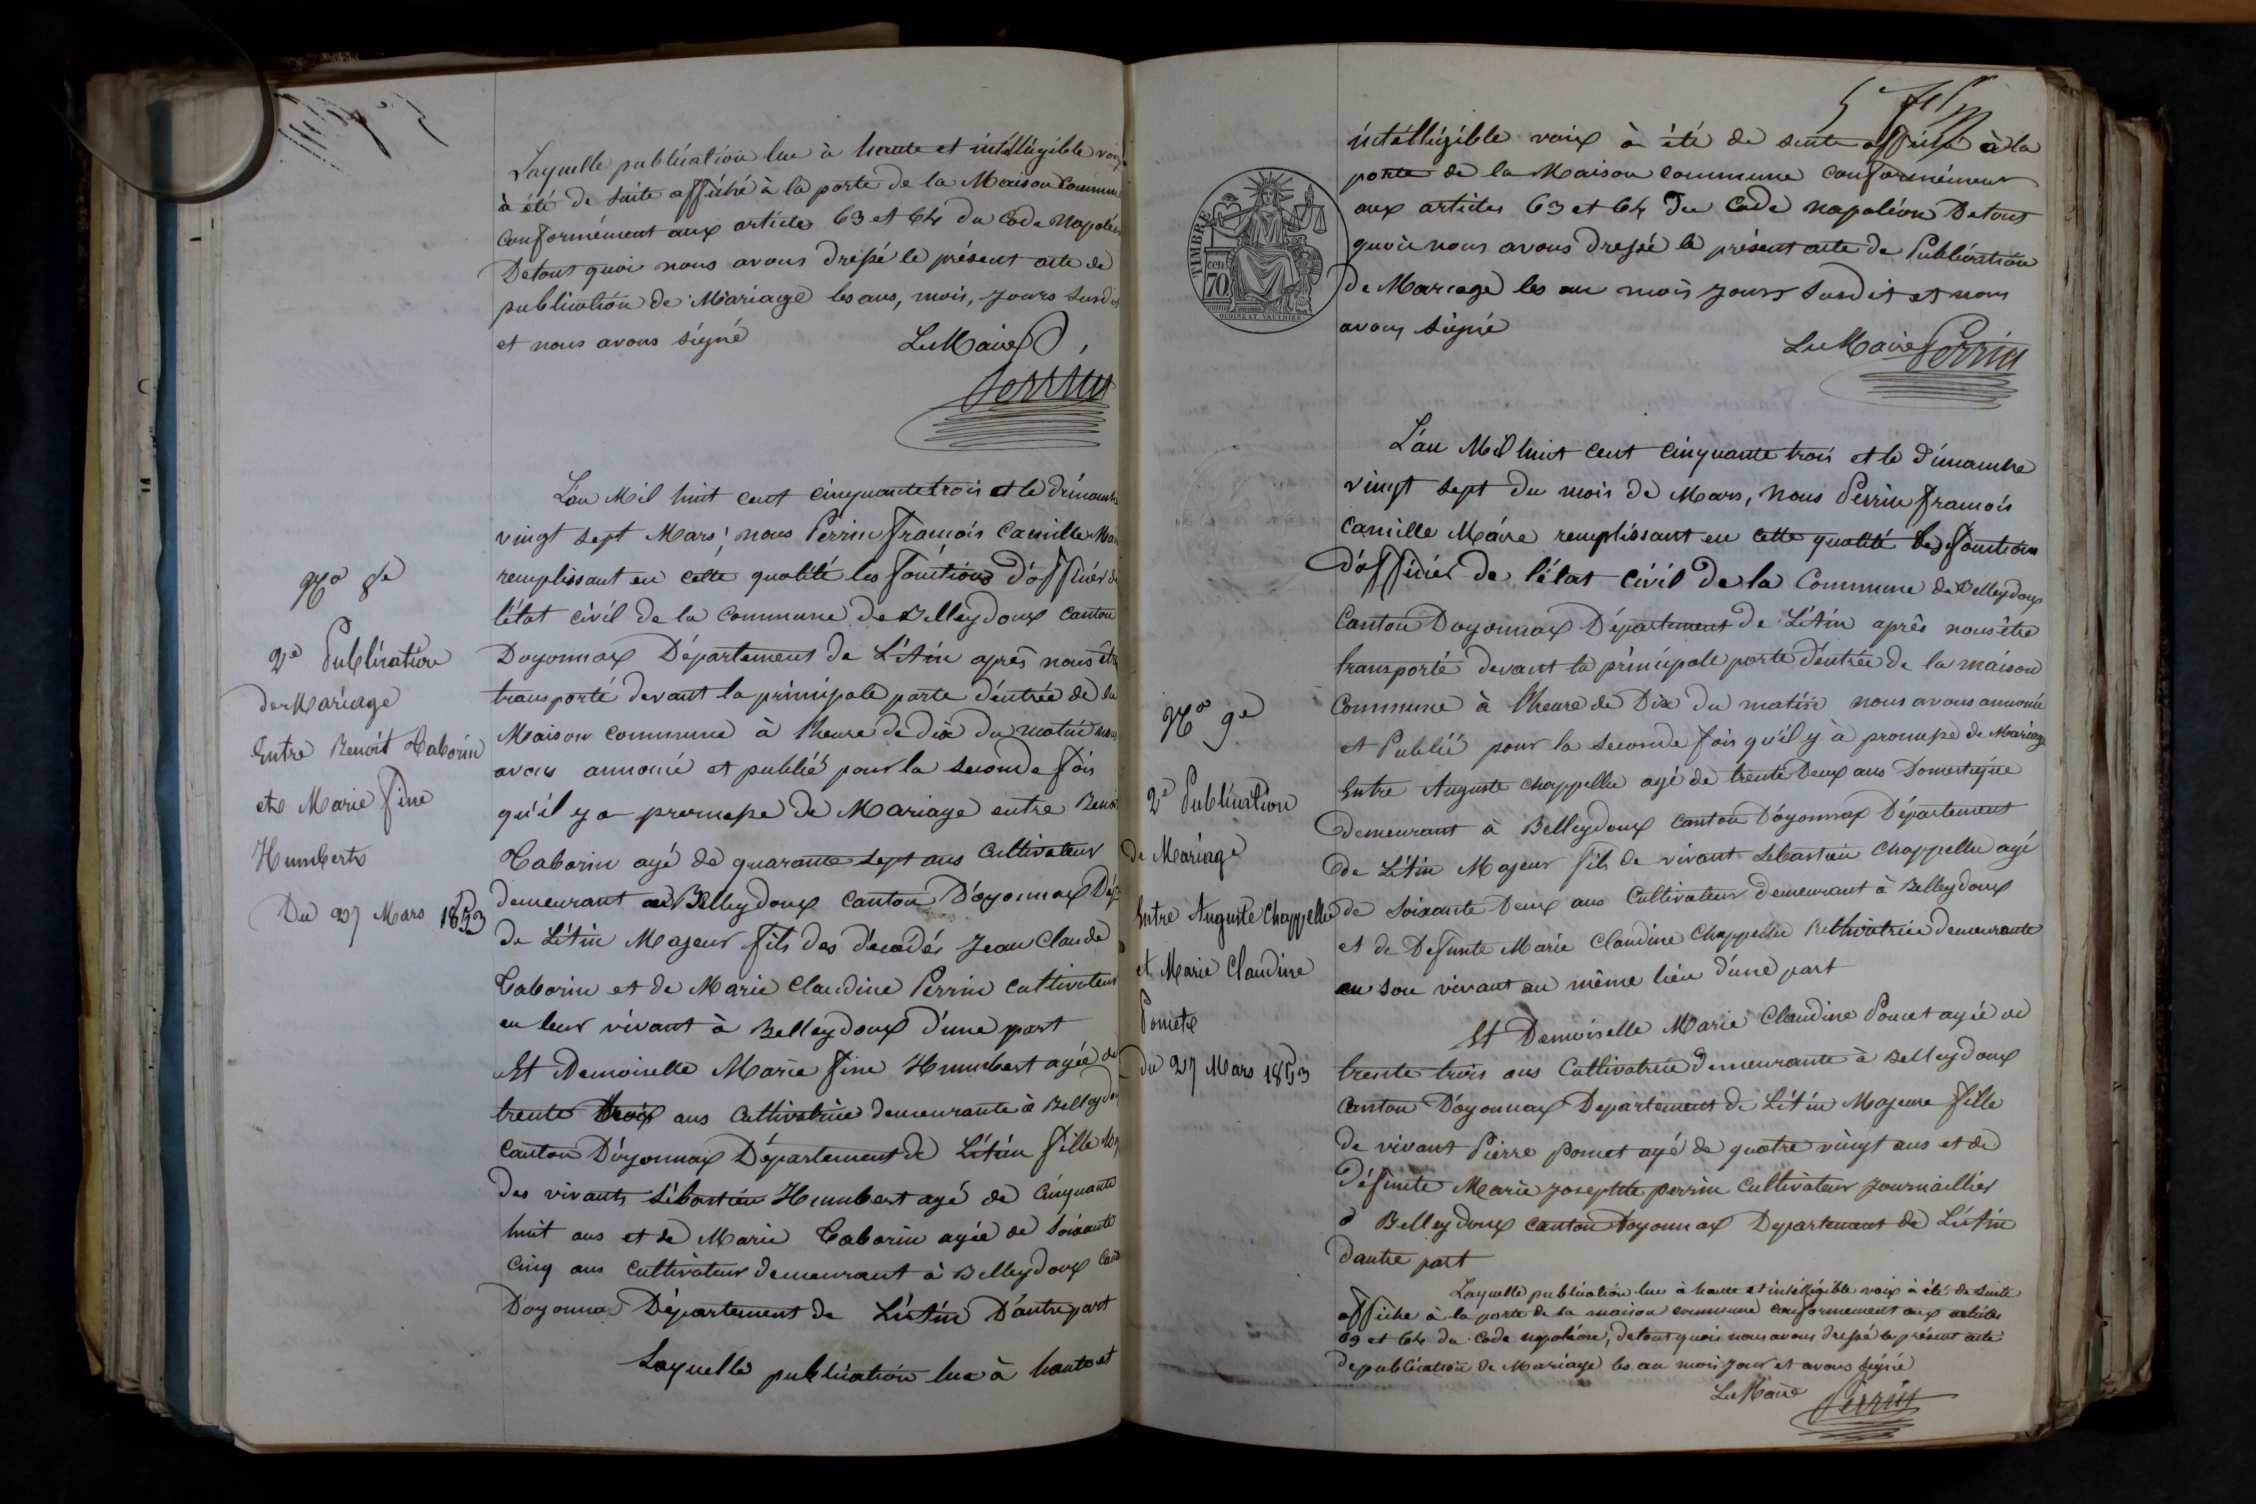 Laquelle publication lue à haute et intélligible voix
à été de suite affiché à la porte de la Maison Commune
conformément aux articles 63 et 64 du Code Napoléon
De tout quoi nous avons dressé le présent acte de
publication de Mariage les ans, mois, jours susdits
et nous avons signé
Le Maire
Perrin
Nº 8e
2e Publication
de Mariage
Entre Benoit Taborin
et Marie fine
Humbert
Du 27 Mars 1853
L'an Mil huit cent cinquante trois et le dimanche
vingt sept Mars, nous Perrin François Camille Maire
remplissant en cette qualité les fonctions d'officier de
l'état civil de la commune de Belleydoux canton
Doyonnax Département de L'Ain après nous être
transporté devant la principale porte d'entrée de la
Maison commune à l'heure de dix du matin nous
avons annoncé et publié pour la seconde fois
qu'il y a promesse de Mariage entre Benoit
Taborin agé de quarante sept ans Cultivateur
demeurant à Belleydoux canton D'oyonnax Dépt
de L'Ain Majeur fils des décédés Jean Claude
Taborin et de Marie Claudine Perrin cultivateurs
en leur vivant à Belleydoux d'une part
Et Demoiselle Marie fine Humbert agée de
trente trois ans Cultivatrice demeurante à Belleydoux
canton D'oyonnax Département de L'Ain fille
des vivants Sébastien Humbert agé de Cinquante
huit ans et de Marie Taborin agée de Soixante
Cinq ans cultivateur demeurant à Belleydoux Canton
D'oyonnax Département de L'Ain D'autre part
Laquelle publication lue à haute et
5
TIMBRE
70
cen
OUDINE ET VAUTHIER
intélligible voix à été de suite affiché à la
porte de la Maison commune conformément
aux articles 63 et 64 du Code napoléon De tout
quoi nous avons dressé le présent acte de Publication
de Mariage les an mois jours susdit et nous
avons signé
Le Maire Perrin
Nº 9e
2e Publication
de Mariage
Entre Auguste Chappellu
et Marie Claudine
Poncet
du 27 Mars 1853
L'an Mil huit cent cinquante trois et le dimanche
vingt sept du mois de Mars, Nous Perrin François
Camille Maire remplissant en cette qualité les fonctions
d'officier de l'état civil de la Commune de Belleydoux
Canton Doyonnax Département de L'Ain après nous être
transporté devant la principale porte d'entrée de la maison
Commune à l'heure de Dix du matin nous avons annoncé
et Publié pour la seconde fois qu'il y à promesse de Mariage
Entre Auguste Chappellu agé de trente Deux ans Domestique
demeurant à Belleydoux canton D'oyonnax Département
de L'Ain Majeur fils de vivant Sébastien Chappellu agé
de soixante Deux ans Cultivateur demeurant à Belleydoux
et de Defunte Marie Claudine Chappellu Cultivatrice demeurante
en son vivant au même lieu d'une part
Et Demoiselle Marie Claudine Poncet agée de
trente trois ans Cultivatrice demeurante à Belleydoux
Canton D'oyonnax Département de L'Ain Majeure fille
de vivant Pierre poncet agé de quatre vingt ans et de
défunte Marie josephte perrin cultivateur journaillier
à Belleydoux canton Doyonnax Département de L'Ain
dautre part
Laquelle publication lue à haute et intélligible voix à été de suite
affiché à la porte de la maison commune conformement aux articles
63 et 64 du code napoléon, de tout quoi nous avons dressé le présent acte
de publication de Mariage les an mois jour et avons signé
Le Maire Perrin